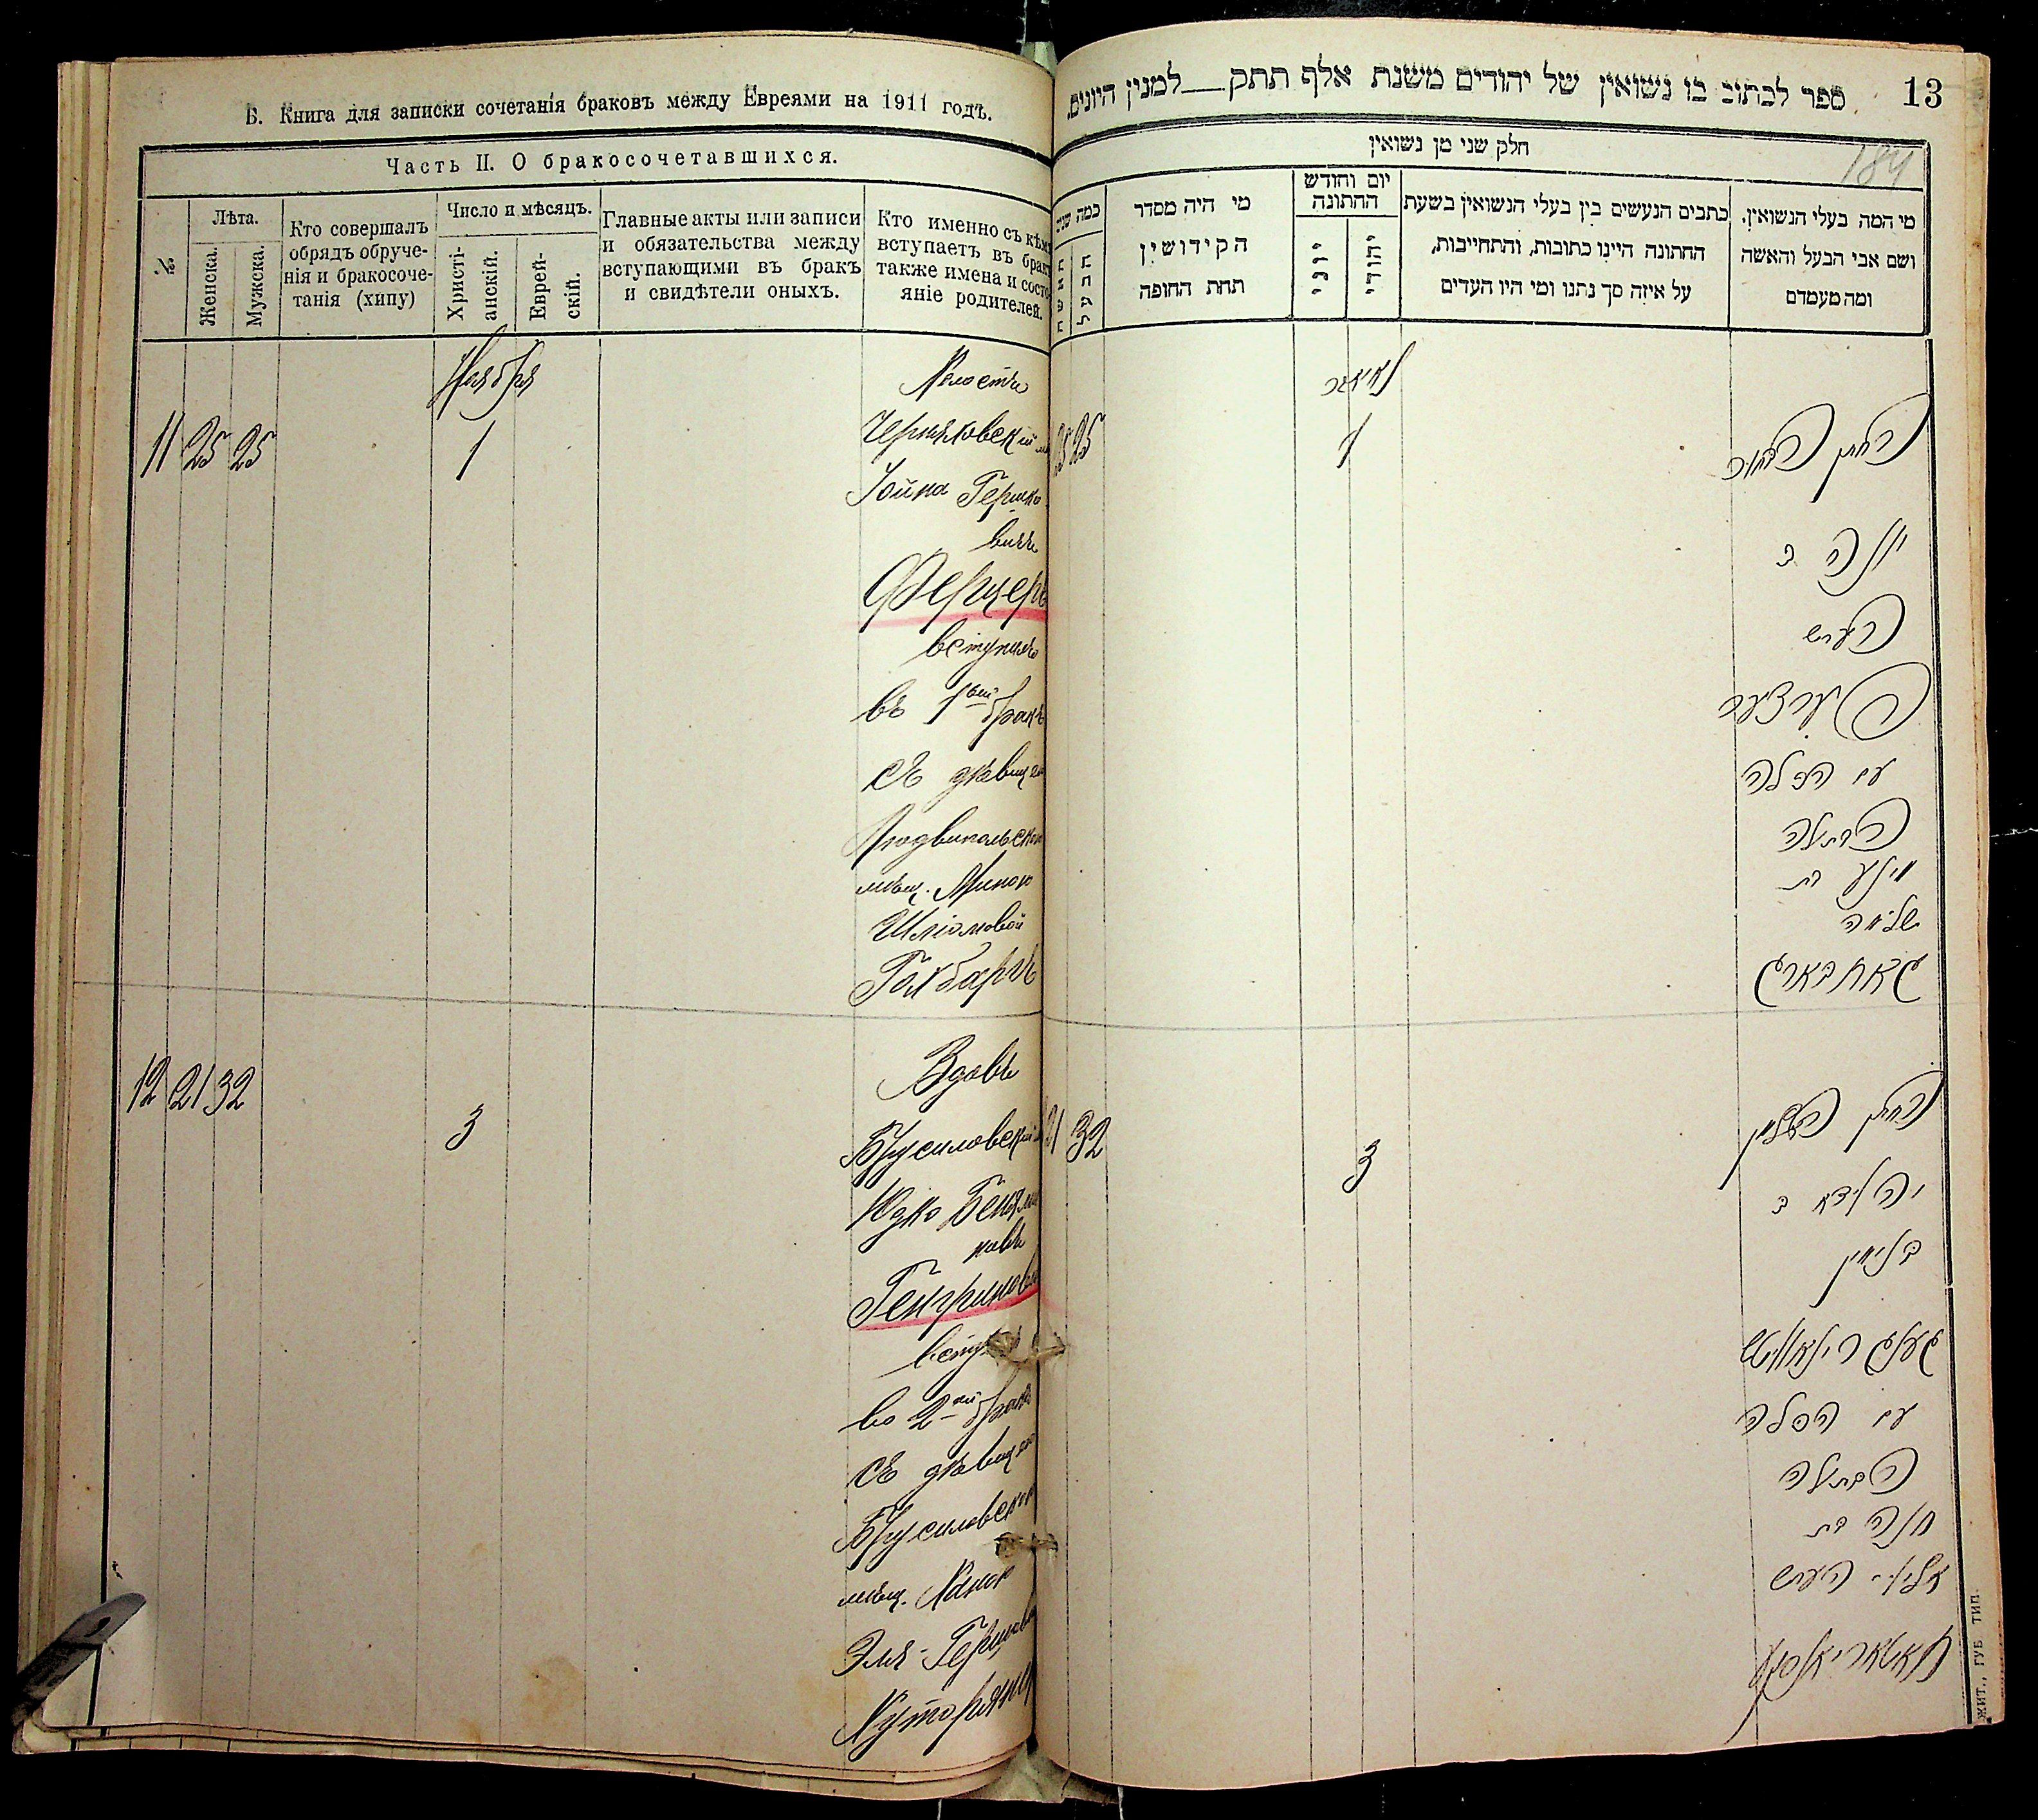 Б. Книга для записки сочетанія браковъ между Евреями на 1911 годъ.
Часть II. О бракосочетавшихся.
№
Лѣта.
Женска.
Мужска.
Кто совершалъ
обрядъ обруче-
нія и бракосоче-
танія (хипу)
Число и мѣсяцъ.
Христі-
анскій.
Еврей-
скій.
Главные акты или записи
и обязательства между
вступающими въ бракъ
и свидѣтели оныхъ.
Кто именно съ кѣмъ
вступаетъ въ бракъ
также имена и состо-
яніе родителей.
Ноября
11 25 25
1
Холостъ
Черняховскій
Іойна Гершко
вичъ
Ферцеръ
вступилъ
въ 1вый бракъ
съ дѣвицею
Людвипольской
мѣщ.
Шліомовой
Гохбаргъ
12 21 32
3
Вдовъ
Брусиловскій
Юдко Беньями
новъ
вступ
во 2ой бракъ
съ дѣвицею
Брусиловской
мѣщ. Ханою
Эля-Гершовой
13
ספר לכתוב בו נשואין של יהודים משנת אלף תתק למנין היונים.
184
חלק שני מן נשואין
מי המה בעלי הנשואין.
ושם אבי הבעל והאשה
ומה מעמדם
כתבים הנעשים בין בעלי הנשואין בשעת
החתונה היינו כתובות, והתחייבות,
על איזה סך נתנו ומי היו העדים
יום וחודש
החתונה
יהודי
יוני
מי היה מסדר
הקידושין
תחת החופה
כמה שנים
הבעל
האשה
25 25
1
החתן הבחור
יונה ב
הערש
פערצער
עם הכלה
הבתולה
שלמה
גאחבארג
21 32
3
החתן האלמן
יהודא ב
בנימין
עם הכלה
הבתולה
חנה בת
אליהו הערש
ЖИТ., ГУБ. ТИП.